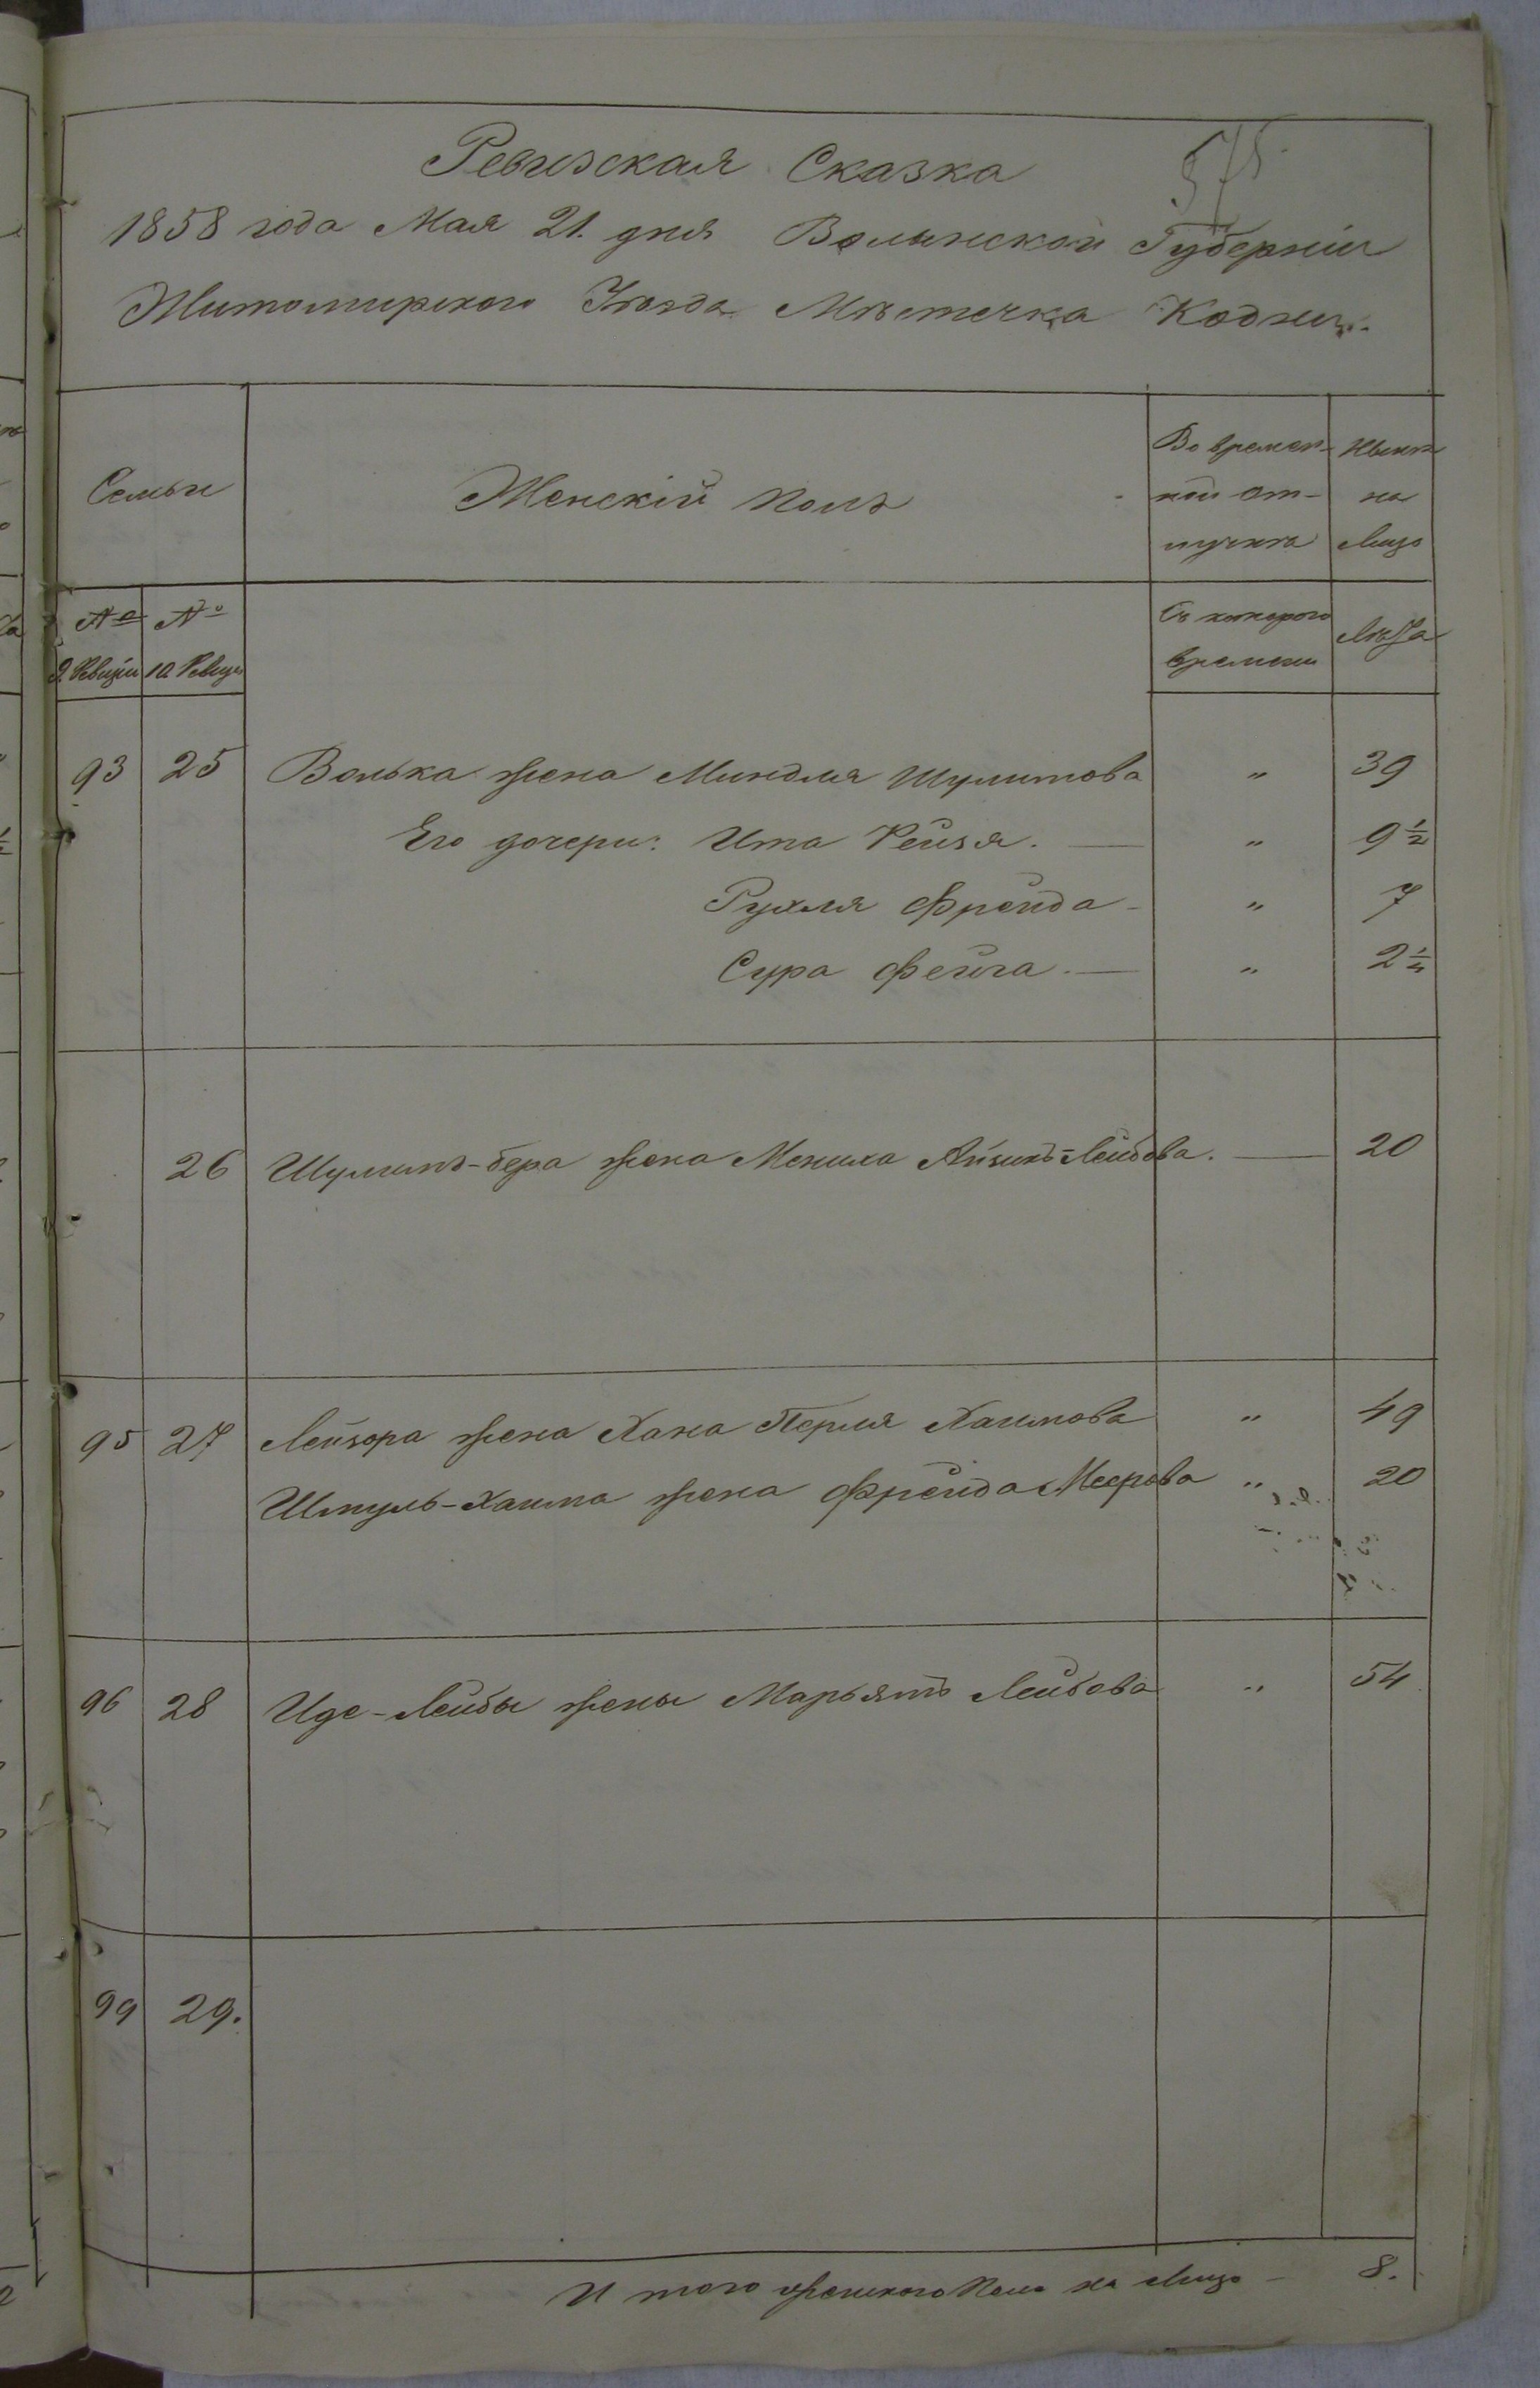 Ревизская Сказка
575
1858 года Мая 21. дня Волынской Губерніи
Житомирского Уѣзда Мѣстечка Кодни.
Семьи
Женскій полъ
Во времен-
ной от-
лучкѣ
Нынѣ
на
лицо
№ 9 Ревизіи
№ 10 Ревизіи
Съ котораго
времени
Лѣта
93 25 Волька жена Миндля Шулимова " 39
Его дочери: Ита Рейзя. — " 9 1/2
Рухля Фрейда - " 7
Сура Фейга. — "
26 Шулимъ-бера жена Мениха Айзикъ-Лейбова. — 20
95 27 Лейзора жена Хана Перля Хаимова " 49
Шмуль-Хаима жена Фрейда Меерова " 20
96 28 Иде-Лейбы жены Марьямъ Лейбова " 54
99 29.
И того женского пола на лицо - 8.